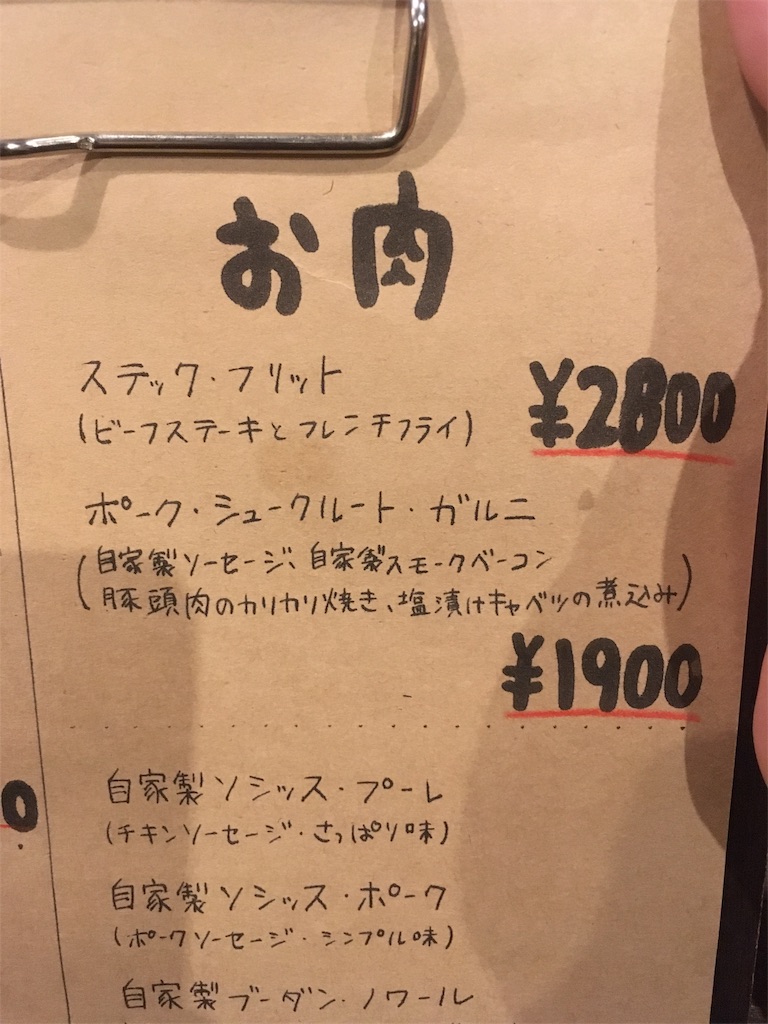 お肉
ステック・フリット
(ビーフステーキとフレンチフライ)
¥2800
ポーク・シュークルート・ガルニ
(自家製ソーセージ、自家製スモークベーコン
豚頭肉のカリカリ焼き、塩漬けキャベツの煮込み)
¥1900
自家製ソシッス・プーレ
(チキンソーセージ・さっぱり味)
自家製ソシッス・ポーク
(ポークソーセージ・シンプル味)
自家製ブーダン・ノワール
0